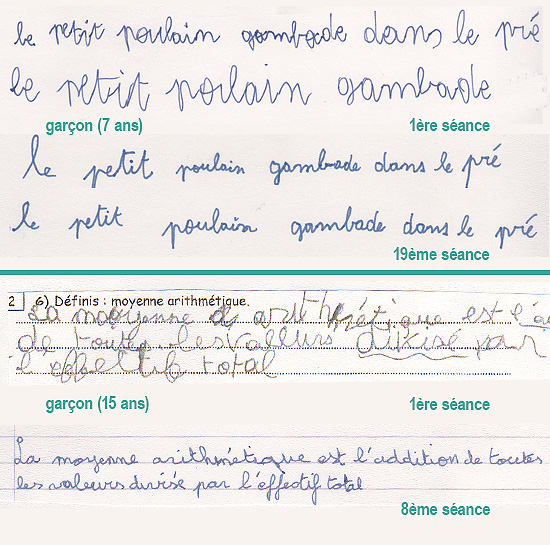 le petit poulain gambade dans le pré
le petit poulain gambade
garçon (7 ans) 1ère séance
le petit poulain gambade dans le pré
le petit poulain gambade dans le pré
19ème séance
2 6) Définis : moyenne arithmétique.
La moyenne d arithmétique est l'a
de toutes les valleurs divisé par
l'effectif total
garçon (15 ans) 1ère séance
La moyenne arithmétique est l'addition de toutes
les valeurs divisé par l'effectif total
8ème séance